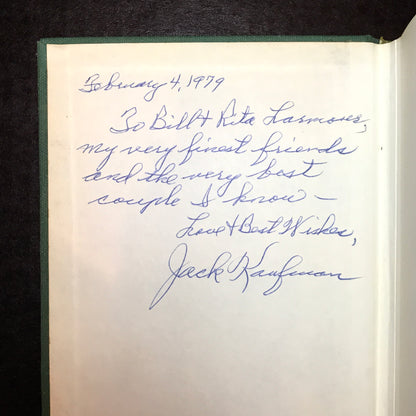 February 4, 1979
To Bill & Rita Larmour,
my very finest friends
and the very best
couple I know —
Love & Best Wishes,
Jack Kaufman